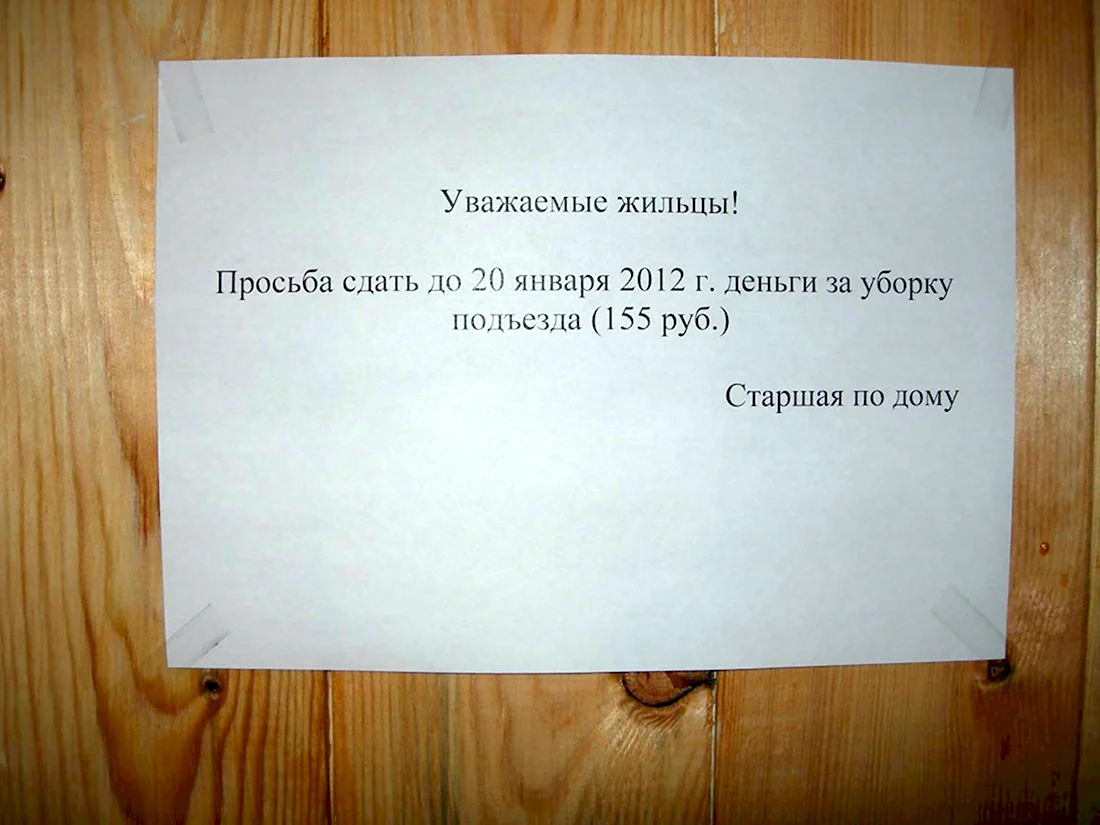 Уважаемые жильцы!
Просьба сдать до 20 января 2012 г. деньги за уборку
подъезда (155 руб.)
Старшая по дому